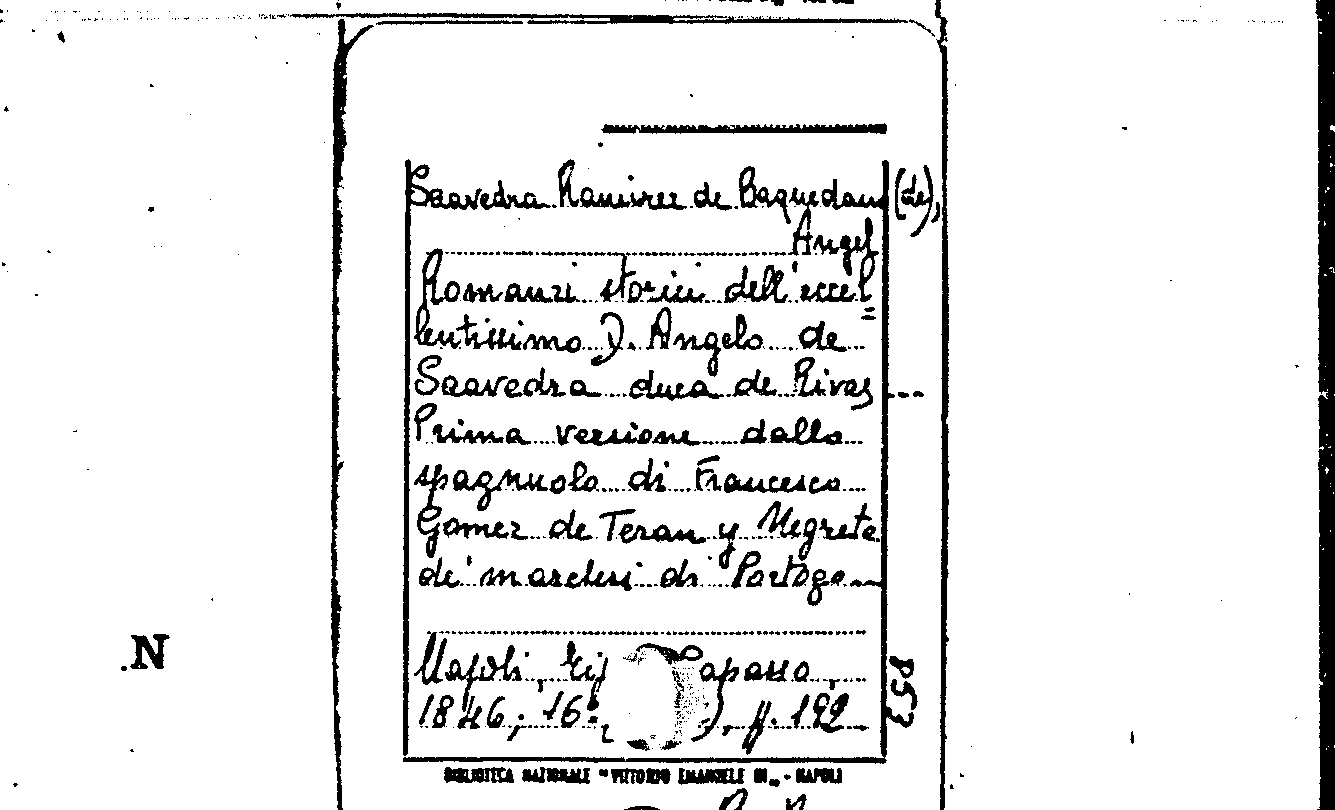 Saavedra Ramirez de Baquedano (de),
Angel
Romanzi storici dell'eccel=
lentissimo D. Angelo de
Saavedra duca de Rivas ...
Prima versione dallo
spagnuolo di Francesco
Gomez de Teran y Negrete
de' marchesi di Portogo
Napoli, Tip apasso,
1846, 16°, p. 192
853
N
BIBLIOTECA NAZIONALE "VITTORIO EMANUELE III" - NAPOLI